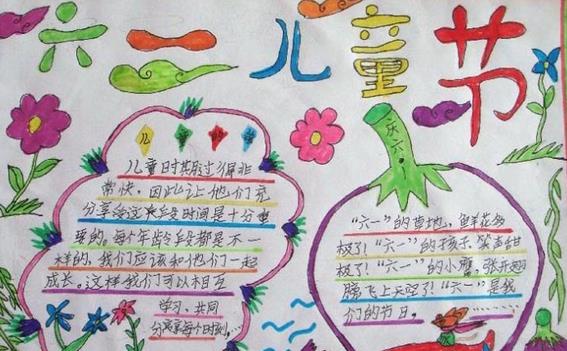 六一儿童节
儿童时期过得非
常快,因此让他们充
分享受这段时间是十分重
要的。每个年龄段都是不一
样的,我们应该和他们一起
成长。这样我们可以相互
学习、共同
分享每个时刻……
庆六一!
"六一"的草地,鲜花多
极了!"六一"的孩子,笑声甜
极了!"六一"的小鹰,张开翅
膀飞上天空了!"六一"是我
们的节日。……